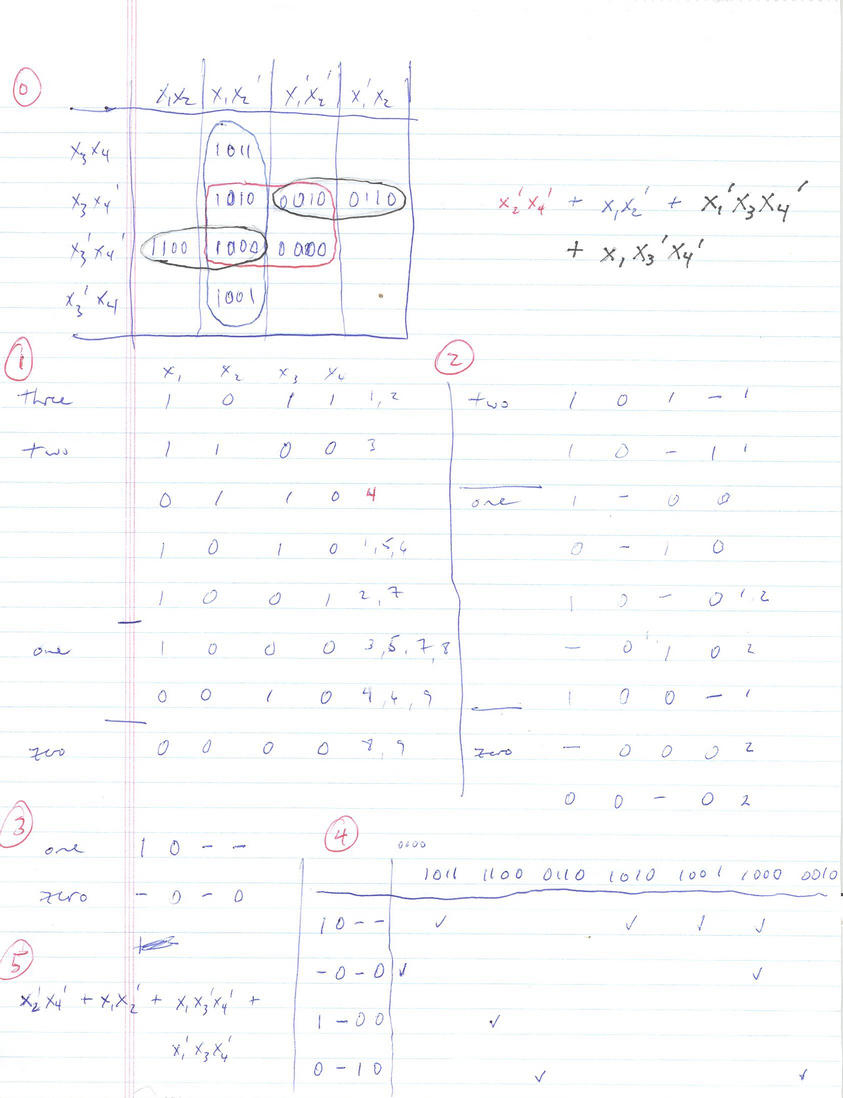 0
x₁x₂ x₁x₂' x₁'x₂' x₁'x₂
x₃x₄ 1011
x₃x₄' 1010 0010 0110
x₃'x₄' 1100 1000 0000
x₃'x₄ 1001
x₂'x₄' + x₁x₂' + x₁'x₃x₄'
+ x₁x₃'x₄'
1
x₁ x₂ x₃ x₄
three 1 0 1 1 1,2
two 1 1 0 0 3
0 1 1 0 4
1 0 1 0 1,5,6
1 0 0 1 2,7
one 1 0 0 0 3,5,7,8
0 0 1 0 4,6,9
zero 0 0 0 0 8,9
2
two 1 0 1 - 1
1 0 - 1 1
one 1 - 0 0
0 - 1 0
1 0 - 0 1,2
- 0 1 0 2
1 0 0 - 1
zero - 0 0 0 2
0 0 - 0 2
3
one 1 0 - -
zero - 0 - 0
4
0000
1011 1100 0110 1010 1001 1000 0010
10-- ✓ ✓ ✓ ✓
-0-0 ✓ ✓
1-00 ✓
0-10 ✓ ✓
5
x₂'x₄' + x₁x₂' + x₁x₃'x₄' +
x₁'x₃x₄'